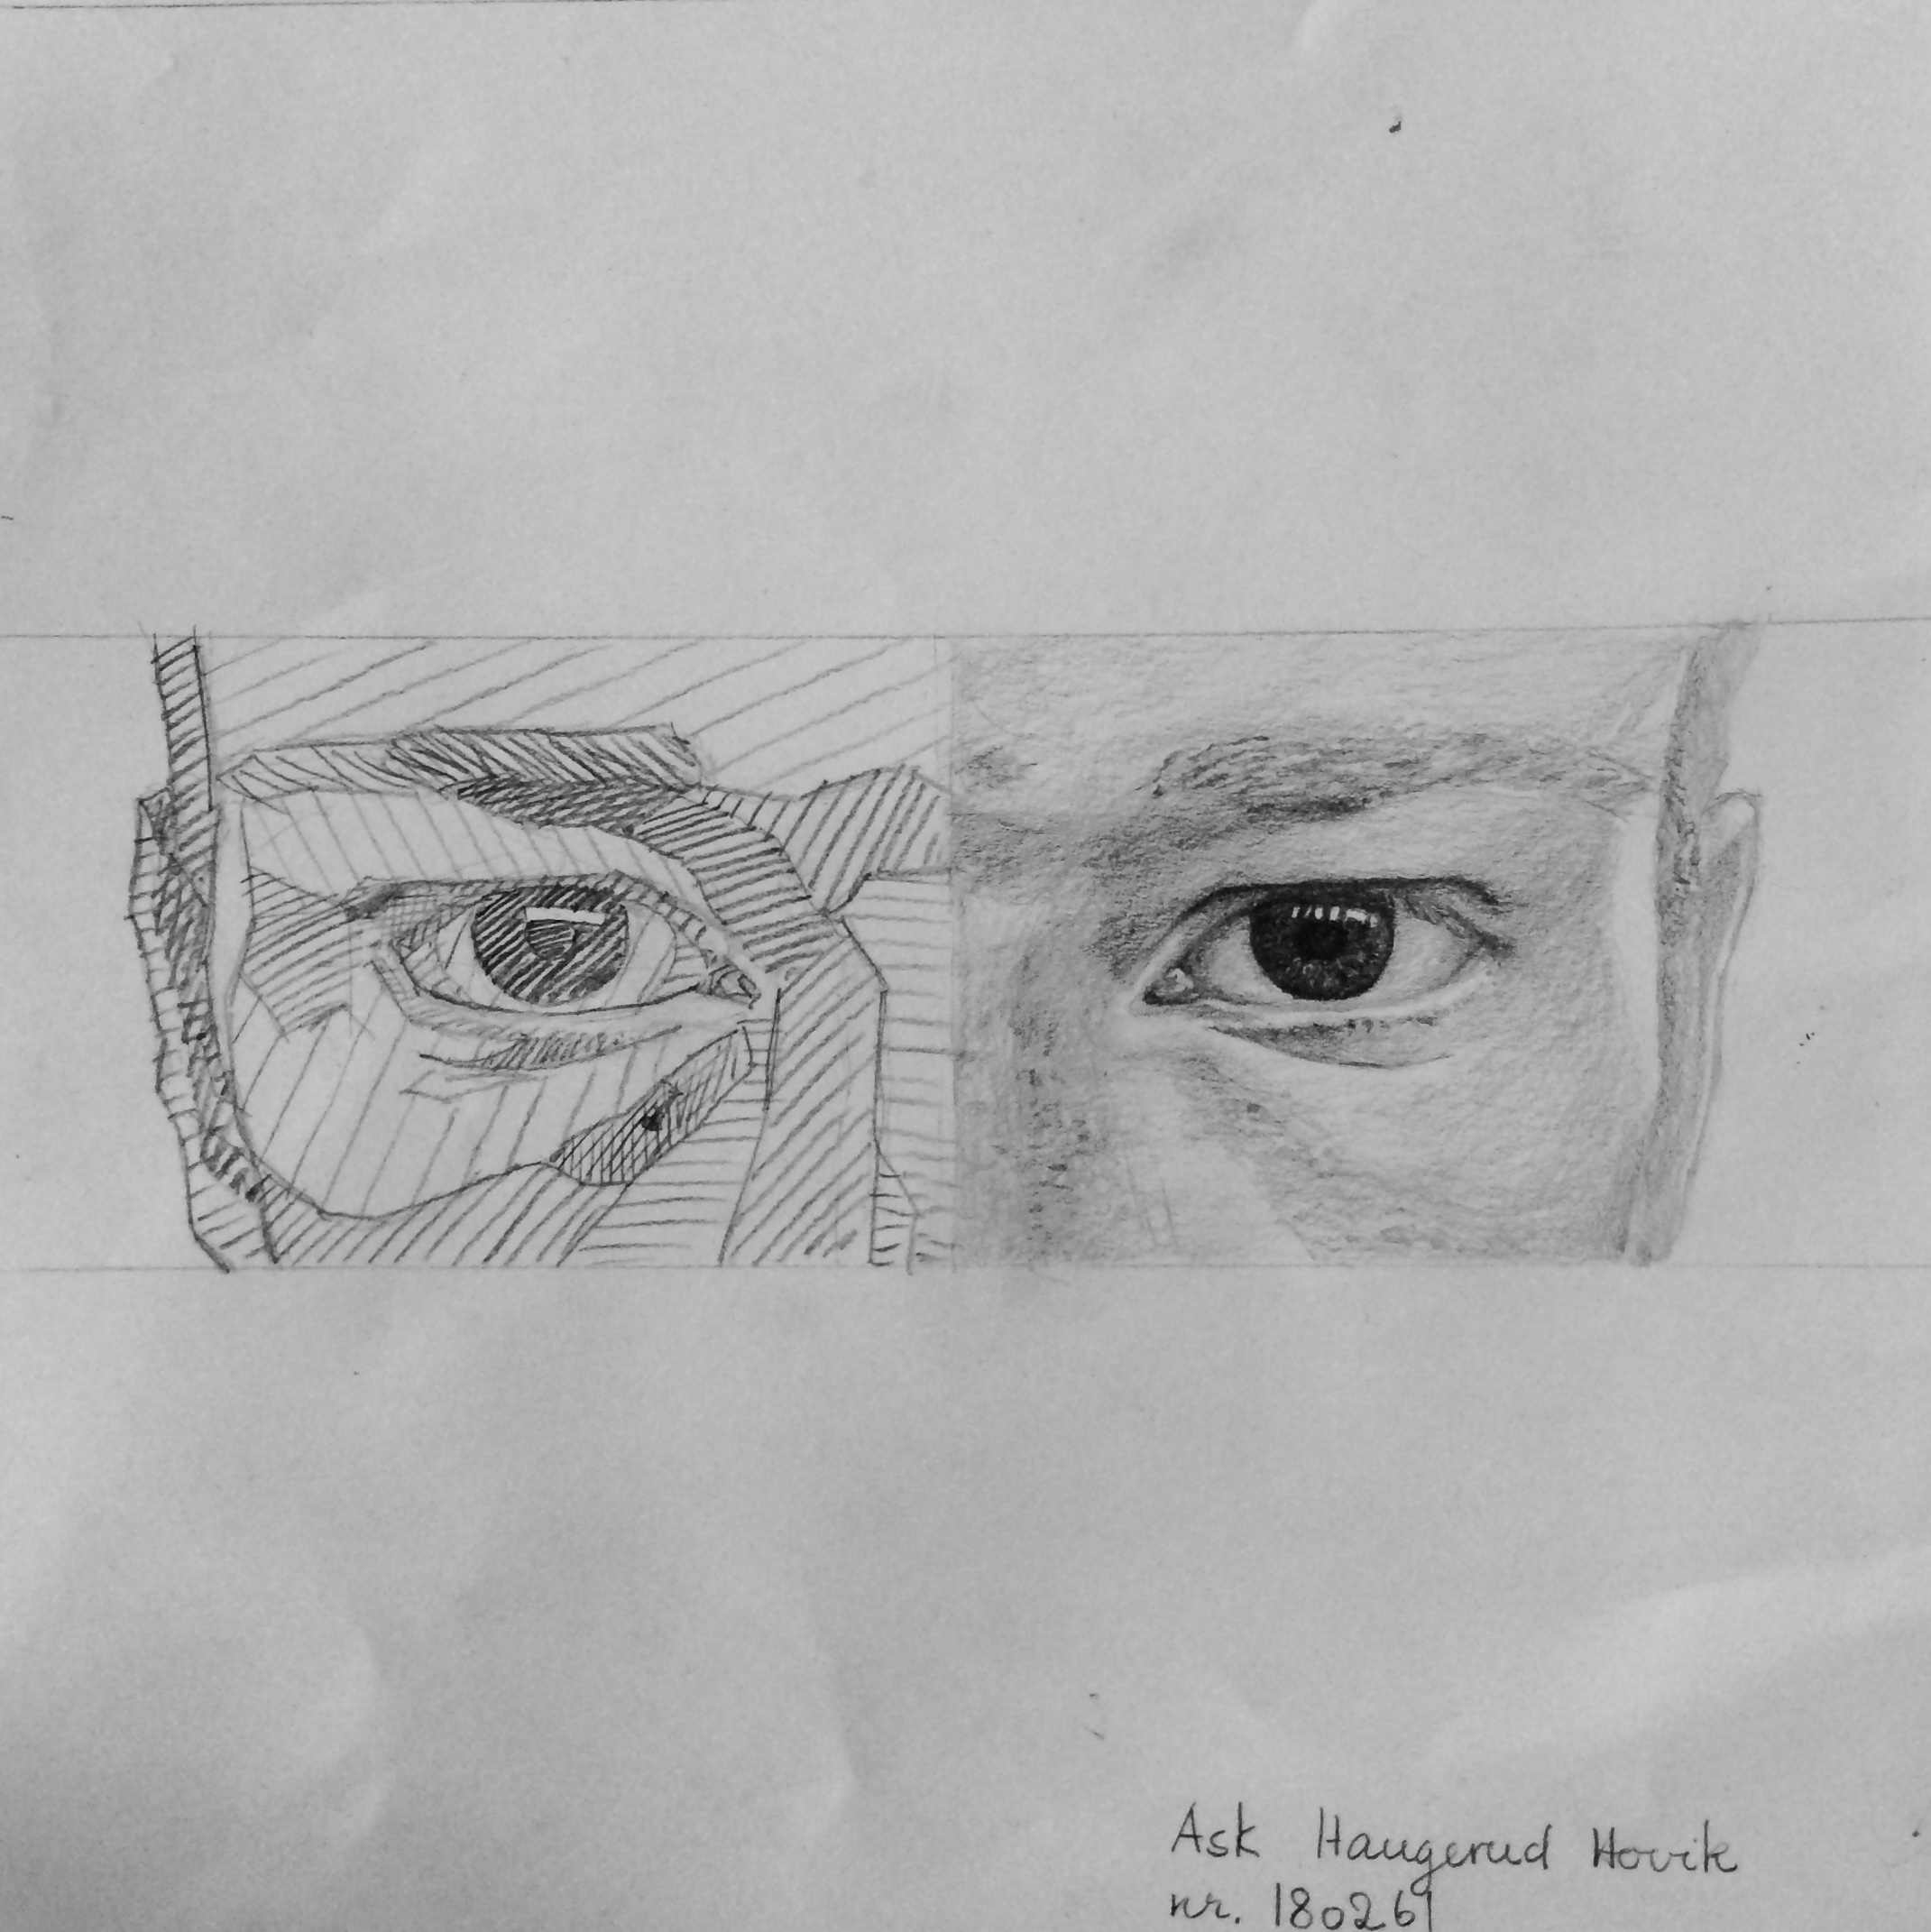 Ask Haugerud Hovik
nr. 180261